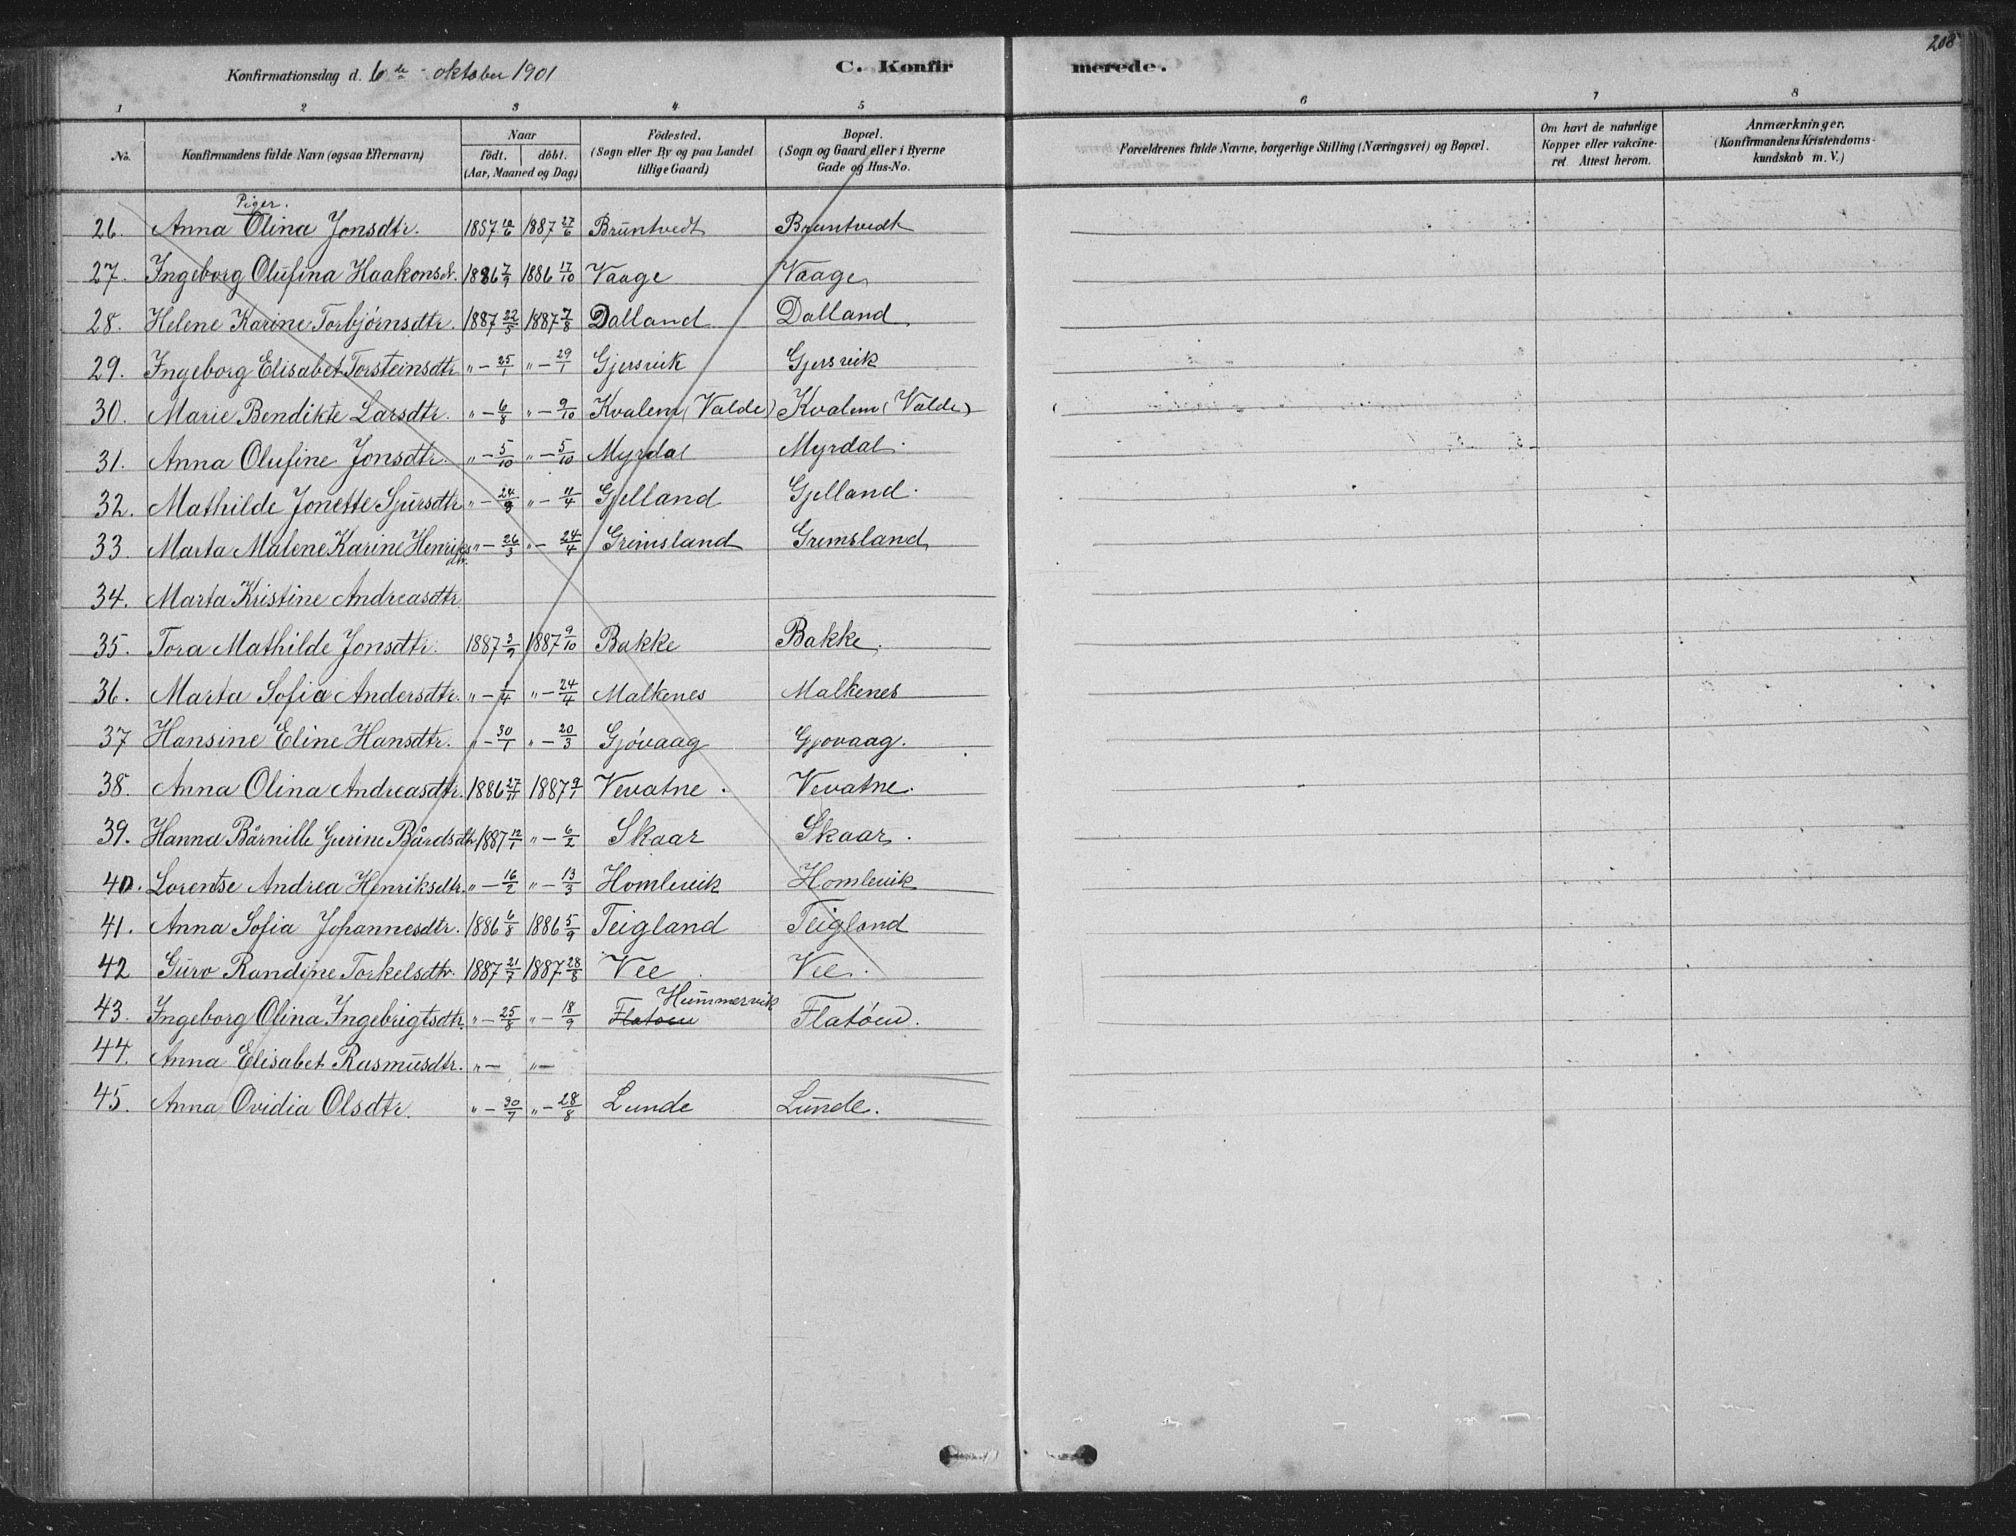 208
Konfirmationsdag d. 6de oktober 1901 C. Konfir merede.
1 2 3 4 5 6 7 8
No. Konfirmandens fulde Navn (ogsaa Efternavn) Naar födt. döbt. (Aar, Maaned og Dag) Födested. (Sogn eller By og paa Landet tillige Gaard) Bopæl. (Sogn og Gaard eller i Byerne Gade og Hus-No. Forældrenes fulde Navne, borgerlige Stilling (Næringsvei) og Bopæl. Om havt de naturlige Kopper eller vakcineret. Attest herom. Anmærkninger. (Konfirmandens Kristendomskundskab m. V.)
Piger.
26. Anna Olina Jonsdtr. 1857 12/6 1887 27/6 Bruntvedt Bruntvedt
27. Ingeborg Olufina Haakonsdr. 1886 7/9 1886 17/10 Vaage Vaage
28. Helene Karine Torbjörnsdtr. 1887 22/5 1887 7/8 Dalland Dalland
29. Ingeborg Elisabet Torsteinsdtr " - 25/1 " - 29/1 Gjersvik Gjersvik
30. Marie Bendikte Larsdtr. " - 6/8 " - 9/10 Kvalem (Valde) Kvalem (Valde)
31. Anna Olufine Jonsdtr. " - 5/10 " - 5/10 Myrdal Myrdal
32. Mathilde Jonette Sjursdtr " - 24/3 " - 11/4 Gjelland Gjelland
33. Marta Malene Karine Henriksdtr. " - 26/3 " - 24/4 Grimsland Grimsland
34. Marta Kristine Andreasdtr
35. Tora Mathilde Jonsdtr. 1887 3/9 1887 9/10 Bakke Bakke
36. Marta Sofia Andersdtr. " - 1/4 " - 24/4 Malkenes Malkenes
37 Hansine Eline Hansdtr. " - 30/1 " - 20/3 Gjövaag Gjovaag.
38. Anna Olina Andreasdtr. 1886 27/11 1887 9/1 Vevatne Vevatne.
39. Hanna Bårnille Gurine Bårdsdtr 1887 12/1 " - 6/2 Skaar Skaar.
40. Lorentse Andrea Henriksdtr. " - 16/2 " - 13/3 Homlevik Homlevik
41. Anna Sofia Johannesdtr. 1886 6/8 1886 5/9 Teigland Teigland
42 Guro Randine Torkelsdtr. 1887 21/7 1887 28/8 Vee Vee.
43. Ingeborg Olina Ingebrigtsdtr " - 25/8 " - 18/9 Flatöen Hummervik Flatöen.
44. Anna Elisabet Rasmusdtr. " - " -
45. Anna Ovidia Olsdtr. " - 30/7 " - 28/8 Lunde Lunde.